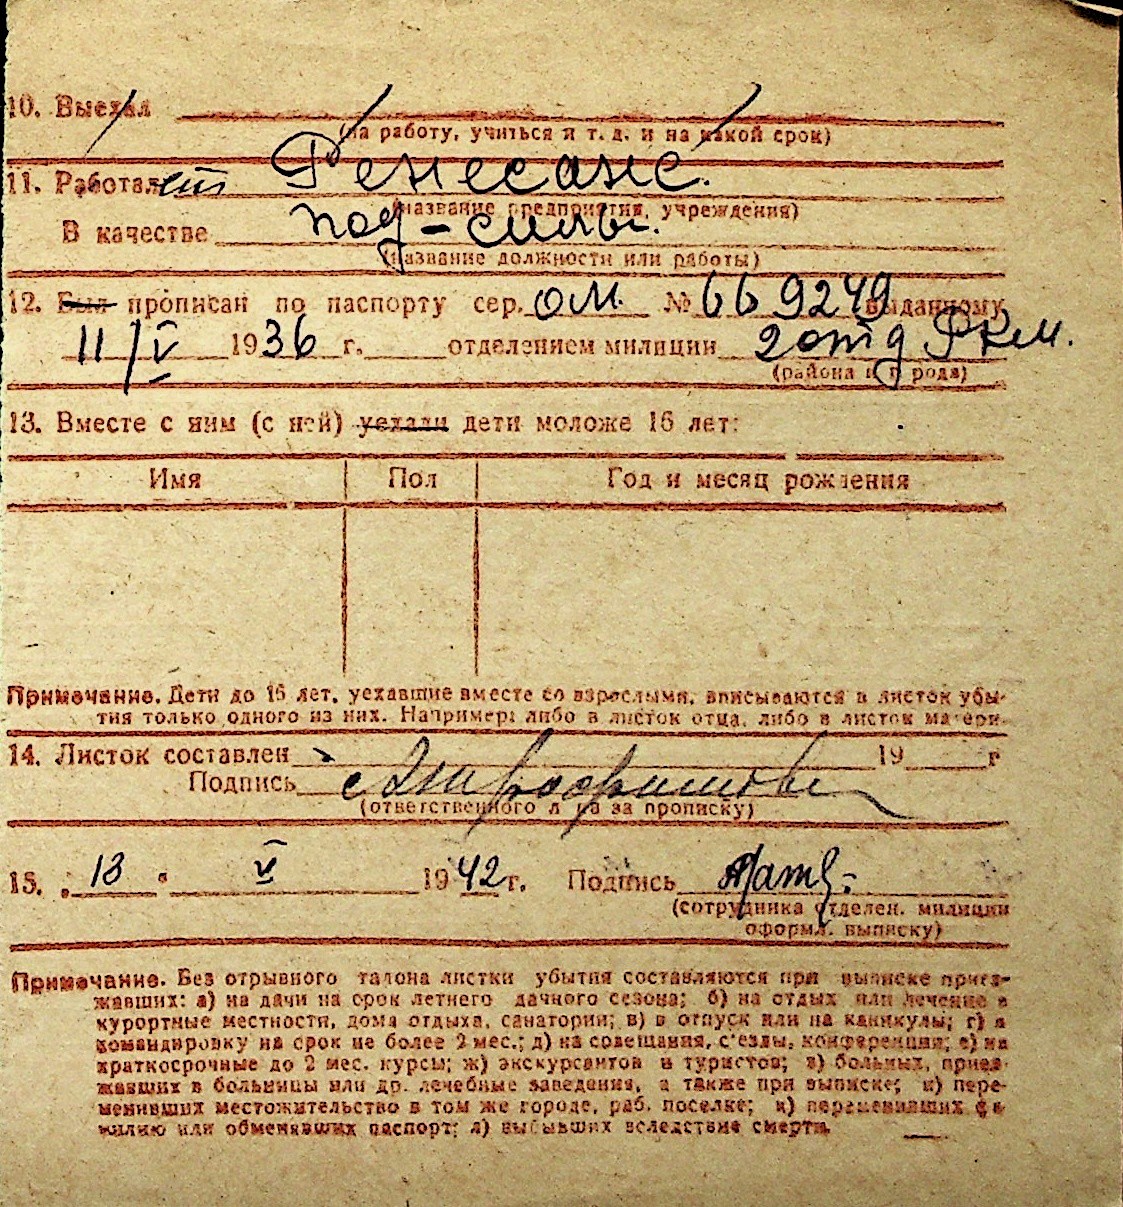 10. Выехал
(на работу, учиться и т. д. и на какой срок)
11. Работает Ренесанс.
(название предприятия, учреждения)
В качестве под-силы.
(название должности или работы)
12. Был прописан по паспорту сер. ОМ. № 669249 выданному
11/V 1936 г. отделением милиции 2 отд РКМ.
(района и города)
13. Вместе с ним (с ней) уехали дети моложе 16 лет:
Имя Пол Год и месяц рождения
Примечание. Дети до 16 лет, уехавшие вместе со взрослыми, вписываются в листок убы-
тия только одного из них. Например: либо в листок отца, либо в листок матери.
14. Листок составлен 19 г
Подпись
(ответственного л на за прописку)
15. „13 " V 1942 г. Подпись
(сотрудника отделен. милиции
оформл. выписку)
Примечание. Без отрывного талона листки убытия составляются при выписке приез-
жавших: а) на дачи на срок летнего дачного сезона; б) на отдых или лечение в
курортные местности, дома отдыха, санатории; в) в отпуск или на каникулы; г) в
командировку на срок не более 2 мес.; д) на совещания, с'езды, конференции; е) на
краткосрочные до 2 мес. курсы; ж) экскурсантов и туристов; з) больных, приез-
жавших в больницы или др. лечебные заведения, а также при выписке; и) пере-
менивших местожительство в том же городе, раб. поселке; к) переменивших фа-
милию или обменявших паспорт; л) выбывших вследствие смерти.